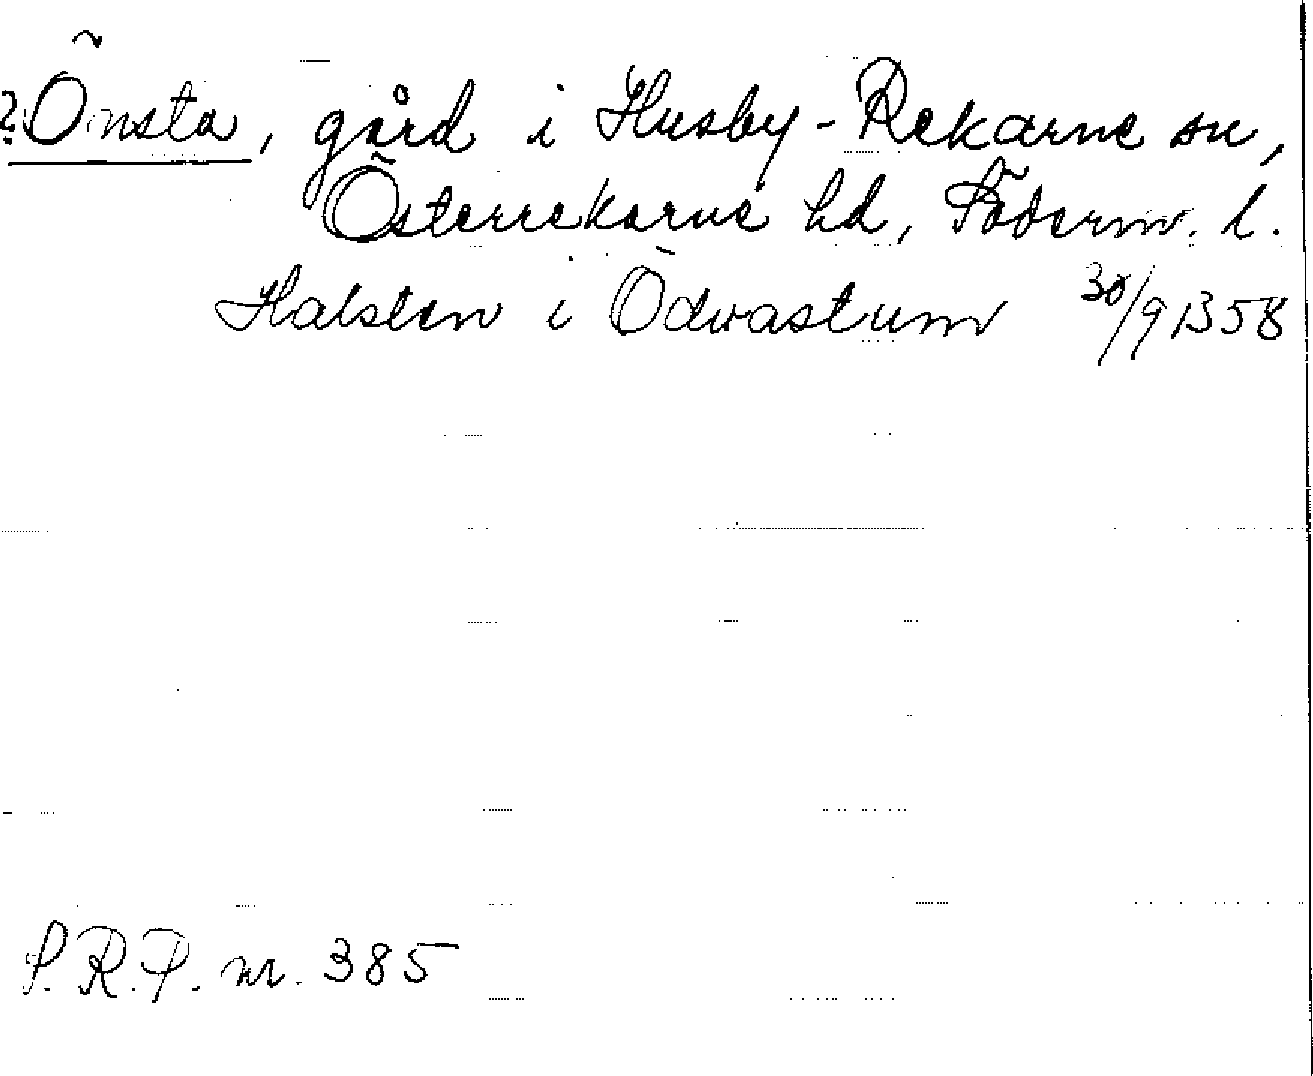 ? Önsta, gård i Husby-Rekarne sn,
Österrekarne hd, Söderm. l.
Halsten i Ödvastum 30/9 1358
S.R.P. nr. 385